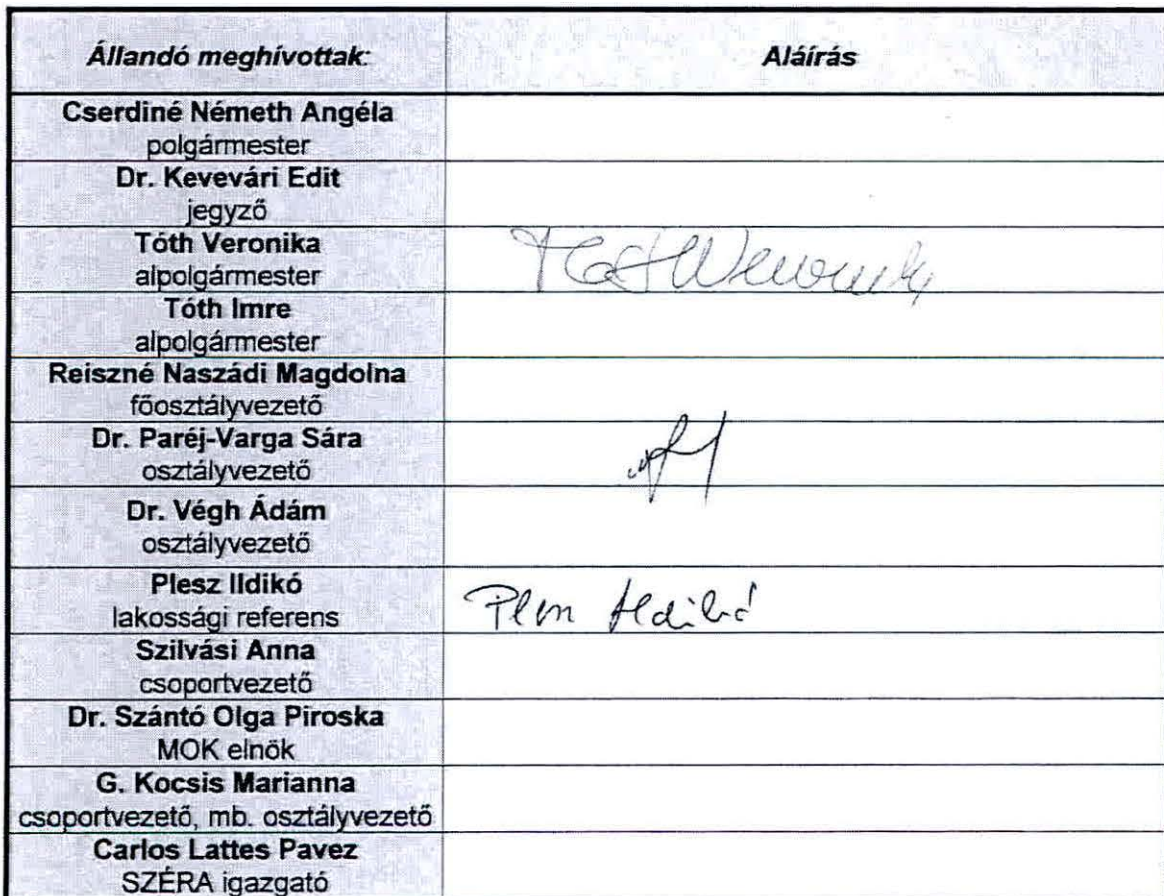 Állandó meghívottak: Aláírás
Cserdiné Németh Angéla
polgármester
Dr. Kevevári Edit
jegyző
Tóth Veronika
alpolgármester
Tóth Imre
alpolgármester
Reiszné Naszádi Magdolna
főosztályvezető
Dr. Paréj-Varga Sára
osztályvezető
Dr. Végh Ádám
osztályvezető
Plesz Ildikó
lakossági referens
Szilvási Anna
csoportvezető
Dr. Szántó Olga Piroska
MOK elnök
G. Kocsis Marianna
csoportvezető, mb. osztályvezető
Carlos Lattes Pavez
SZÉRA igazgató